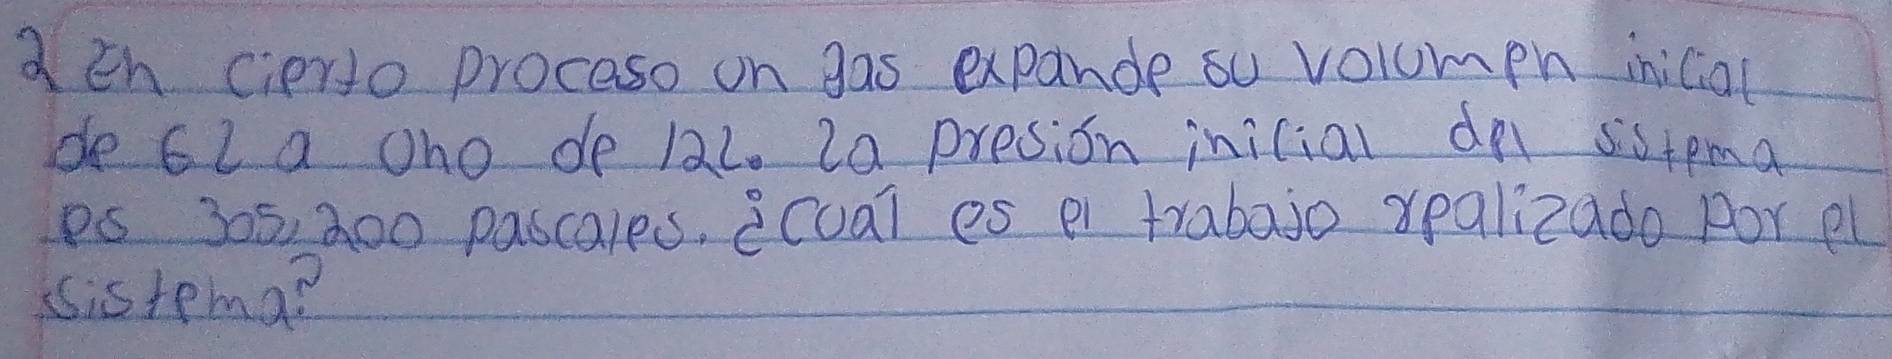 2 En cierto proceso un gas expande su volumen inicial
de 6L a uno de 12L. La presión inicial del sistema
es 305,200 pascales. ¿cuál es el trabajo realizado por el
sistema?